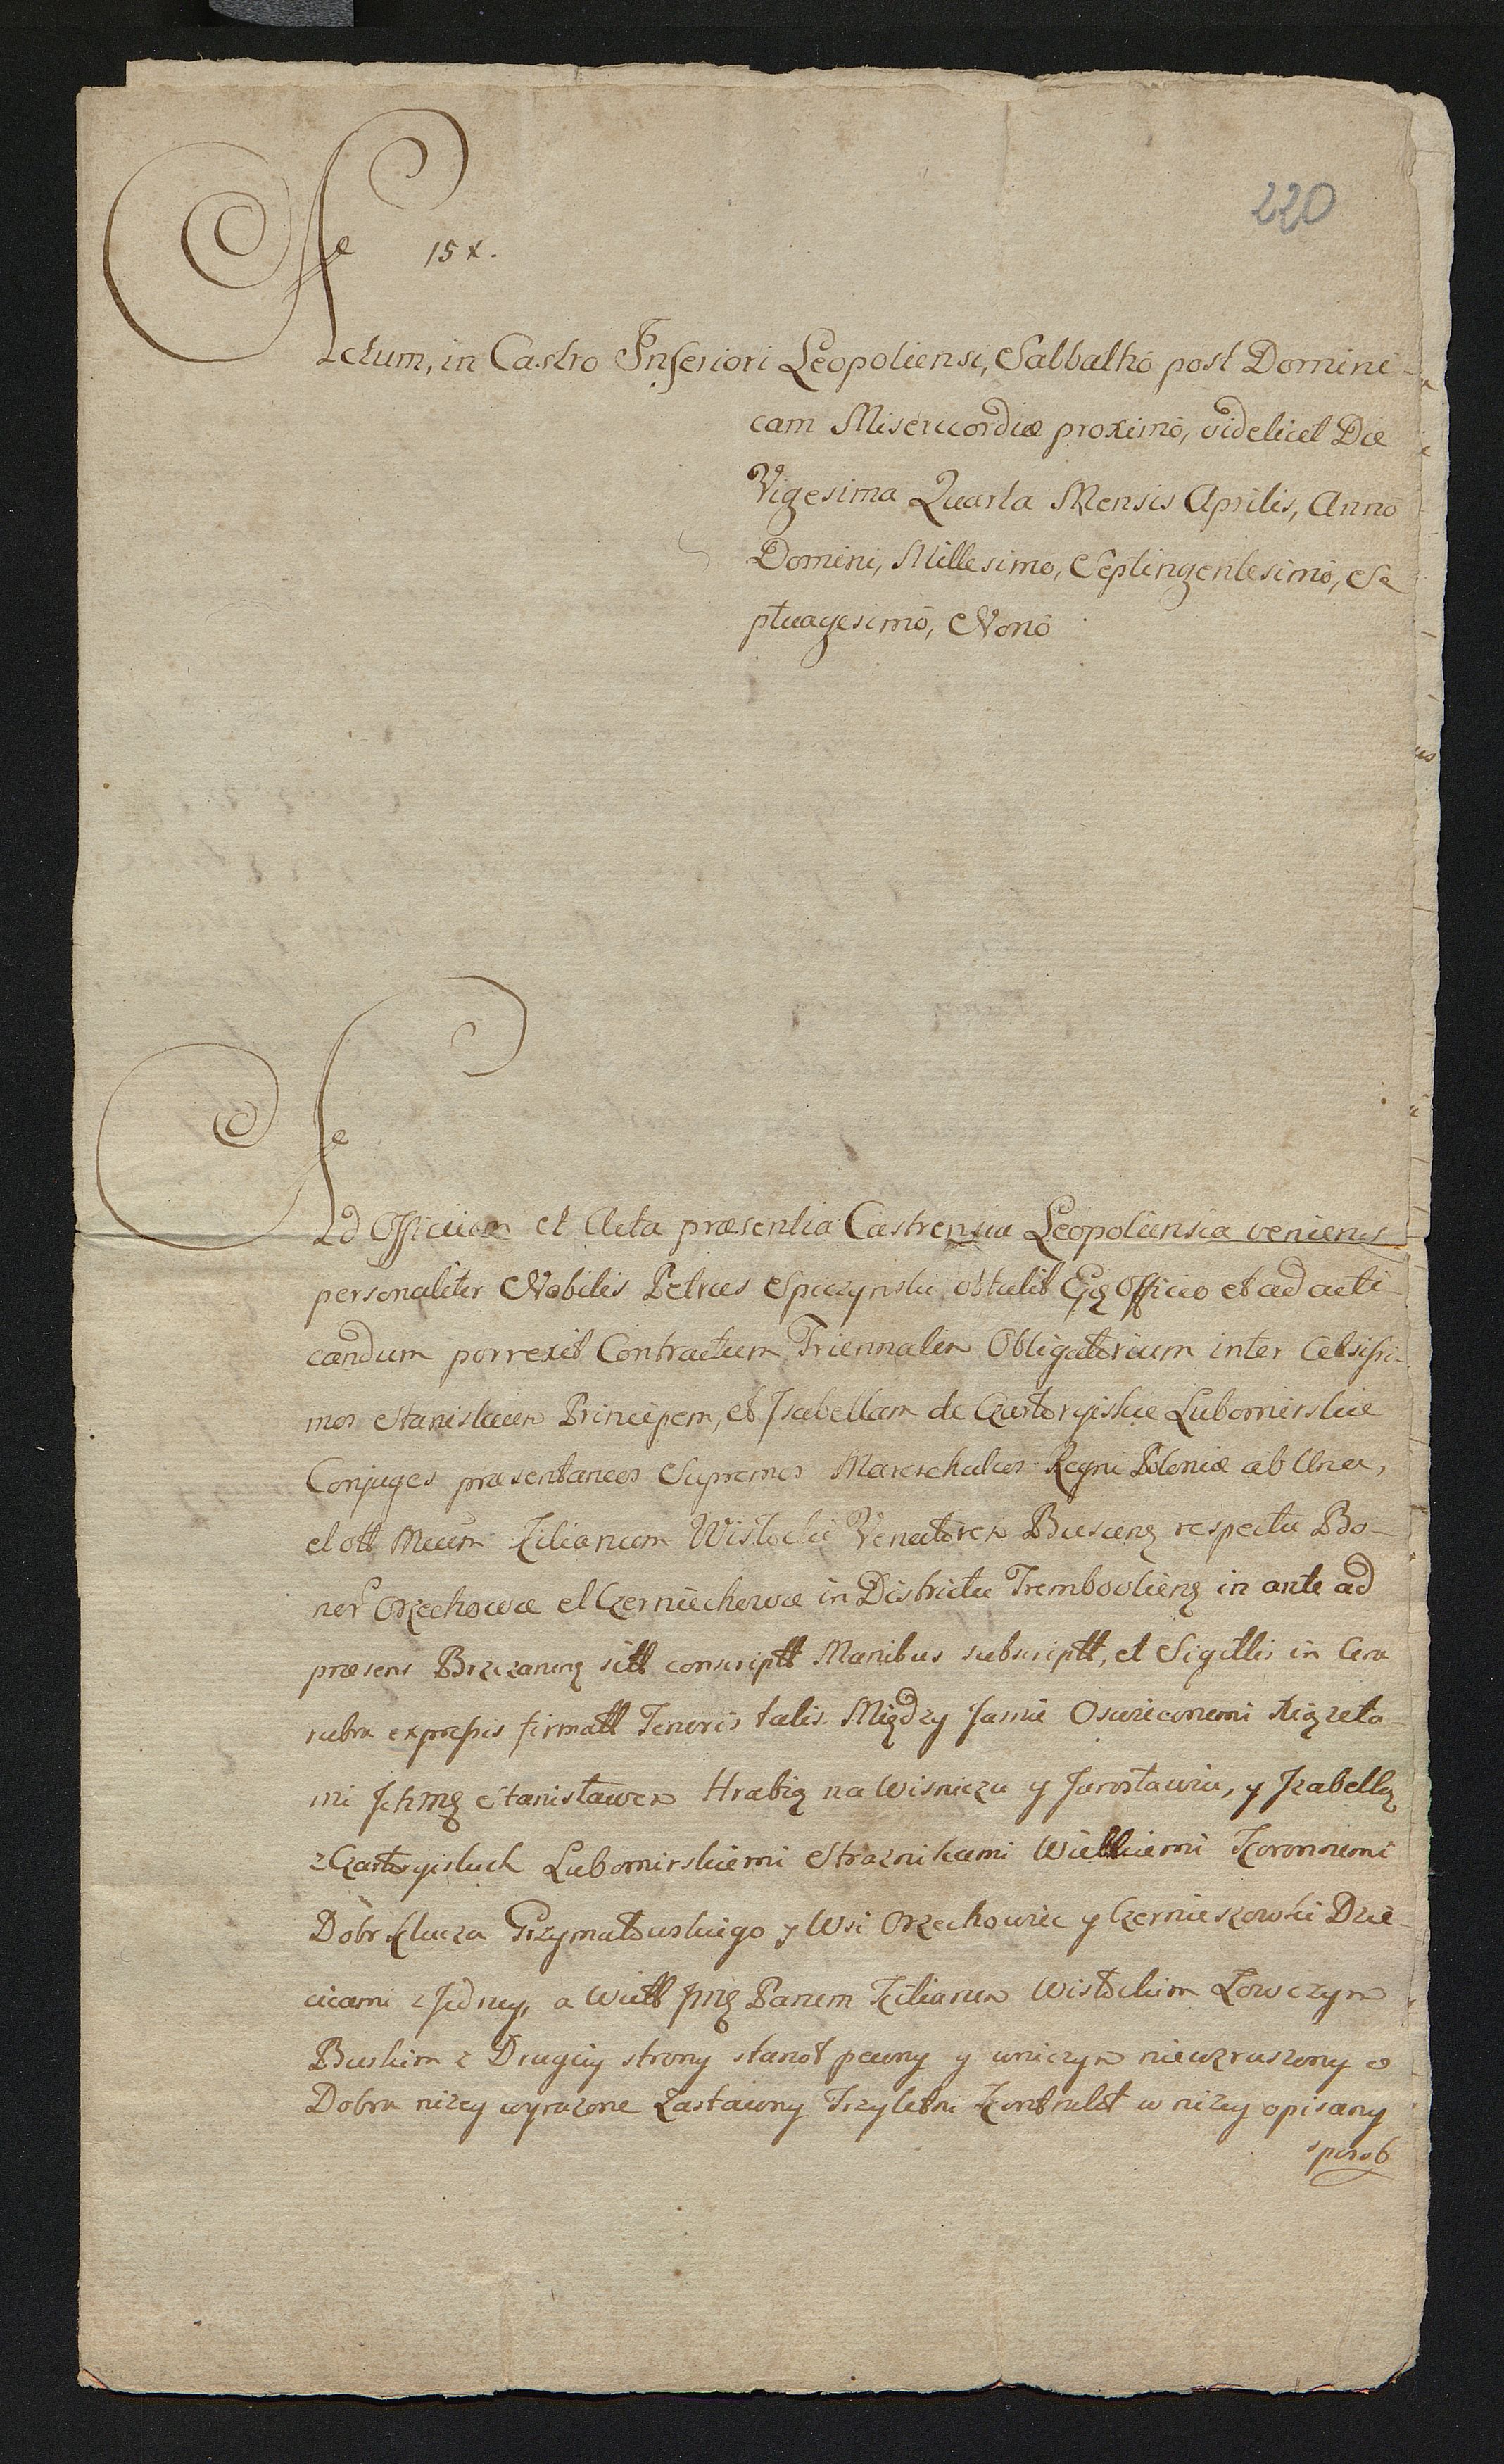 220
15 x.
Actum, in Castro Inferiori Leopoliensi, Sabbatho post Domini-
cam Misericordiæ proximô, videlicet Die
Vigesima Quarta Mensis Aprilis, Annô
Domini, Millesimô, Septingentesimô, Se
ptuagesimô, Nonô
Ad Officium et Acta præsentia Castrensia Leopoliensia veniens
personaliter Nobilis Petrus Spiczynski, obtulit Ejq Officio et ad acti-
candum porrexit Contractum Triennalem Obligatorium inter Celsissi-
mos Stanislaum Principem, et Isabellam de Czartoryiskie Lubomirskie
Conjuges præsentaneos Supremos Mareschalcos Regni Poloniæ ab Una,
et Kilianum Wistocki Venatorem Buscenq respectu Bo-
nor Orzechowce et Czerniechowce in Districtu Trembovlienq in ante ad
præsens Brzezanenq sitt conscriptt Manibus subscriptt, et Sigillis in Cera
rubra expressis firmatt Tenoris talis. Między Jasnie Oswieconemi Xiązeta-
mi Ichmę Stanisławem Hrabią na Wisniczu y Jarosławiu, y Izabellą
z Czartoryiskich Lubomirskiemi Straznikami Wielkiemi Koronnemi
Dobr Klucza Grzymałowskiego y Wsi Orzechowiec y Czernieszowki Dzie-
cicami z Jedney, a Wielb Jmę Panem Kilianem Wistockim Łowczym
Buskim z Drugiey strony stanoł pewny y wniczym niewzruszony o
Dobra nizey wyrazone Zastawny Trzyletni Kontrakt w nizey opisany
sposob